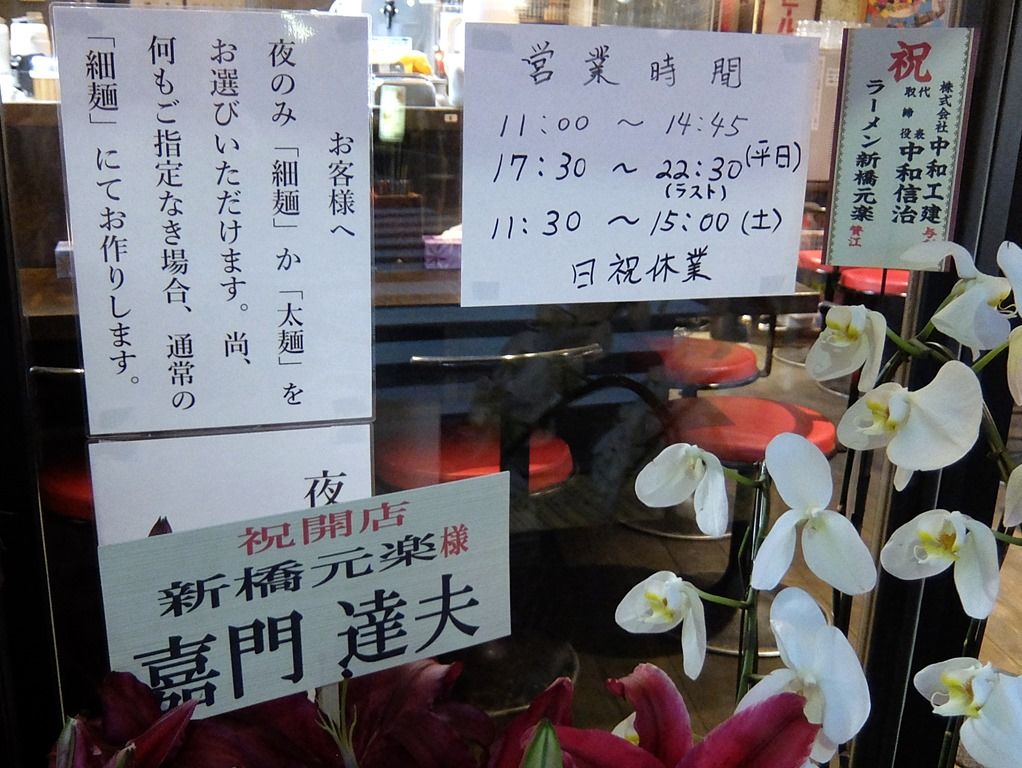 お客様へ
夜のみ「細麺」か「太麺」を
お選びいただけます。尚、
何もご指定なき場合、通常の
「細麺」にてお作りします。
営業時間
11:00 ～ 14:45
17:30 ～ 22:30(平日)
(ラスト)
11:30 ～ 15:00(土)
日祝休業
祝
株式会社 中和工建
代表取締役 中和信治
ラーメン新橋元楽 賛江
夜
祝開店
新橋元楽様
嘉門 達夫